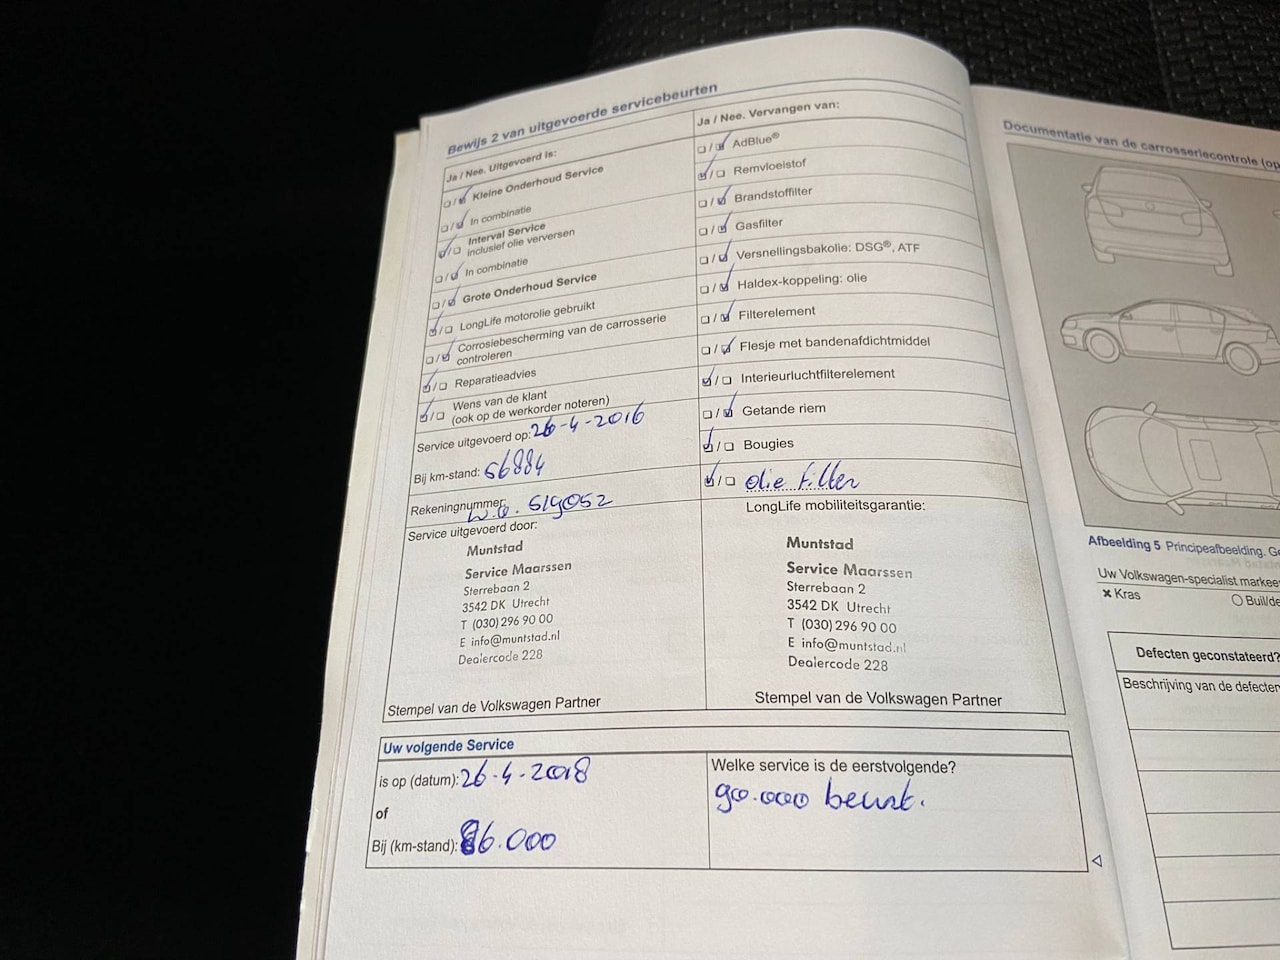 Bewijs 2 van uitgevoerde servicebeurten
Ja / Nee. Uitgevoerd is:
☐/☑ Kleine Onderhoud Service
☐/☑ In combinatie
☑/☐ Interval Service
inclusief olie verversen
☐/☑ In combinatie
☐/☑ Grote Onderhoud Service
☑/☐ LongLife motorolie gebruikt
☐/☑ Corrosiebescherming van de carrosserie
controleren
☑/☐ Reparatieadvies
☑/☐ Wens van de klant
(ook op de werkorder noteren)
Service uitgevoerd op: 26-4-2016
Bij km-stand: 56884
Rekeningnummer: w.o. 519052
Service uitgevoerd door:
Muntstad
Service Maarssen
Sterrebaan 2
3542 DK Utrecht
T (030) 296 90 00
E info@muntstad.nl
Dealercode 228
Stempel van de Volkswagen Partner
Ja / Nee. Vervangen van:
☐/☑ AdBlue®
☑/☐ Remvloeistof
☐/☑ Brandstoffilter
☐/☑ Gasfilter
☐/☑ Versnellingsbakolie: DSG®, ATF
☐/☑ Haldex-koppeling: olie
☐/☑ Filterelement
☐/☑ Flesje met bandenafdichtmiddel
☑/☐ Interieurluchtfilterelement
☐/☑ Getande riem
☑/☐ Bougies
☑/☐ olie filter
LongLife mobiliteitsgarantie:
Muntstad
Service Maarssen
Sterrebaan 2
3542 DK Utrecht
T (030) 296 90 00
E info@muntstad.nl
Dealercode 228
Stempel van de Volkswagen Partner
Uw volgende Service
is op (datum): 26-4-2018
of
Bij (km-stand): 86.000
Welke service is de eerstvolgende?
90.000 beurt.
Documentatie van de carrosseriecontrole (op
Afbeelding 5 Principeafbeelding. Ge
Uw Volkswagen-specialist markee
× Kras
○ Buil/de
Defecten geconstateerd?
Beschrijving van de defecten